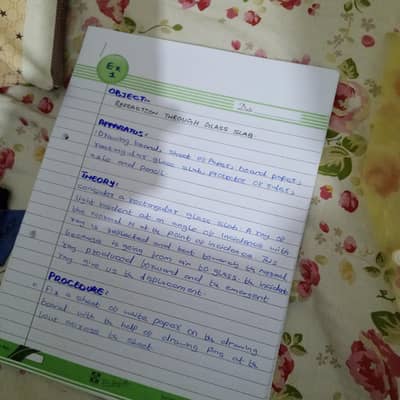 Ex
1
OBJECT:-
REFRACTION THROUGH GLASS SLAB.
APPARATUS:
Drawing board, sheet of Paper, board paper,
rectangular glass slab, Protector or
and pencil
THEORY:
Consider a rectangular glass slab. A ray of
light incident at an angle of incidence with
the Normal N at the point of incidence. This
ray is refracted and bent towards the normal
because is going from air to glass. the incident
ray produced forward and the emergent
ray give us the displacement.
PROCEDURE:
Fix a sheet of white paper on the drawing
board with the help of drawing Ping at the
the sheet